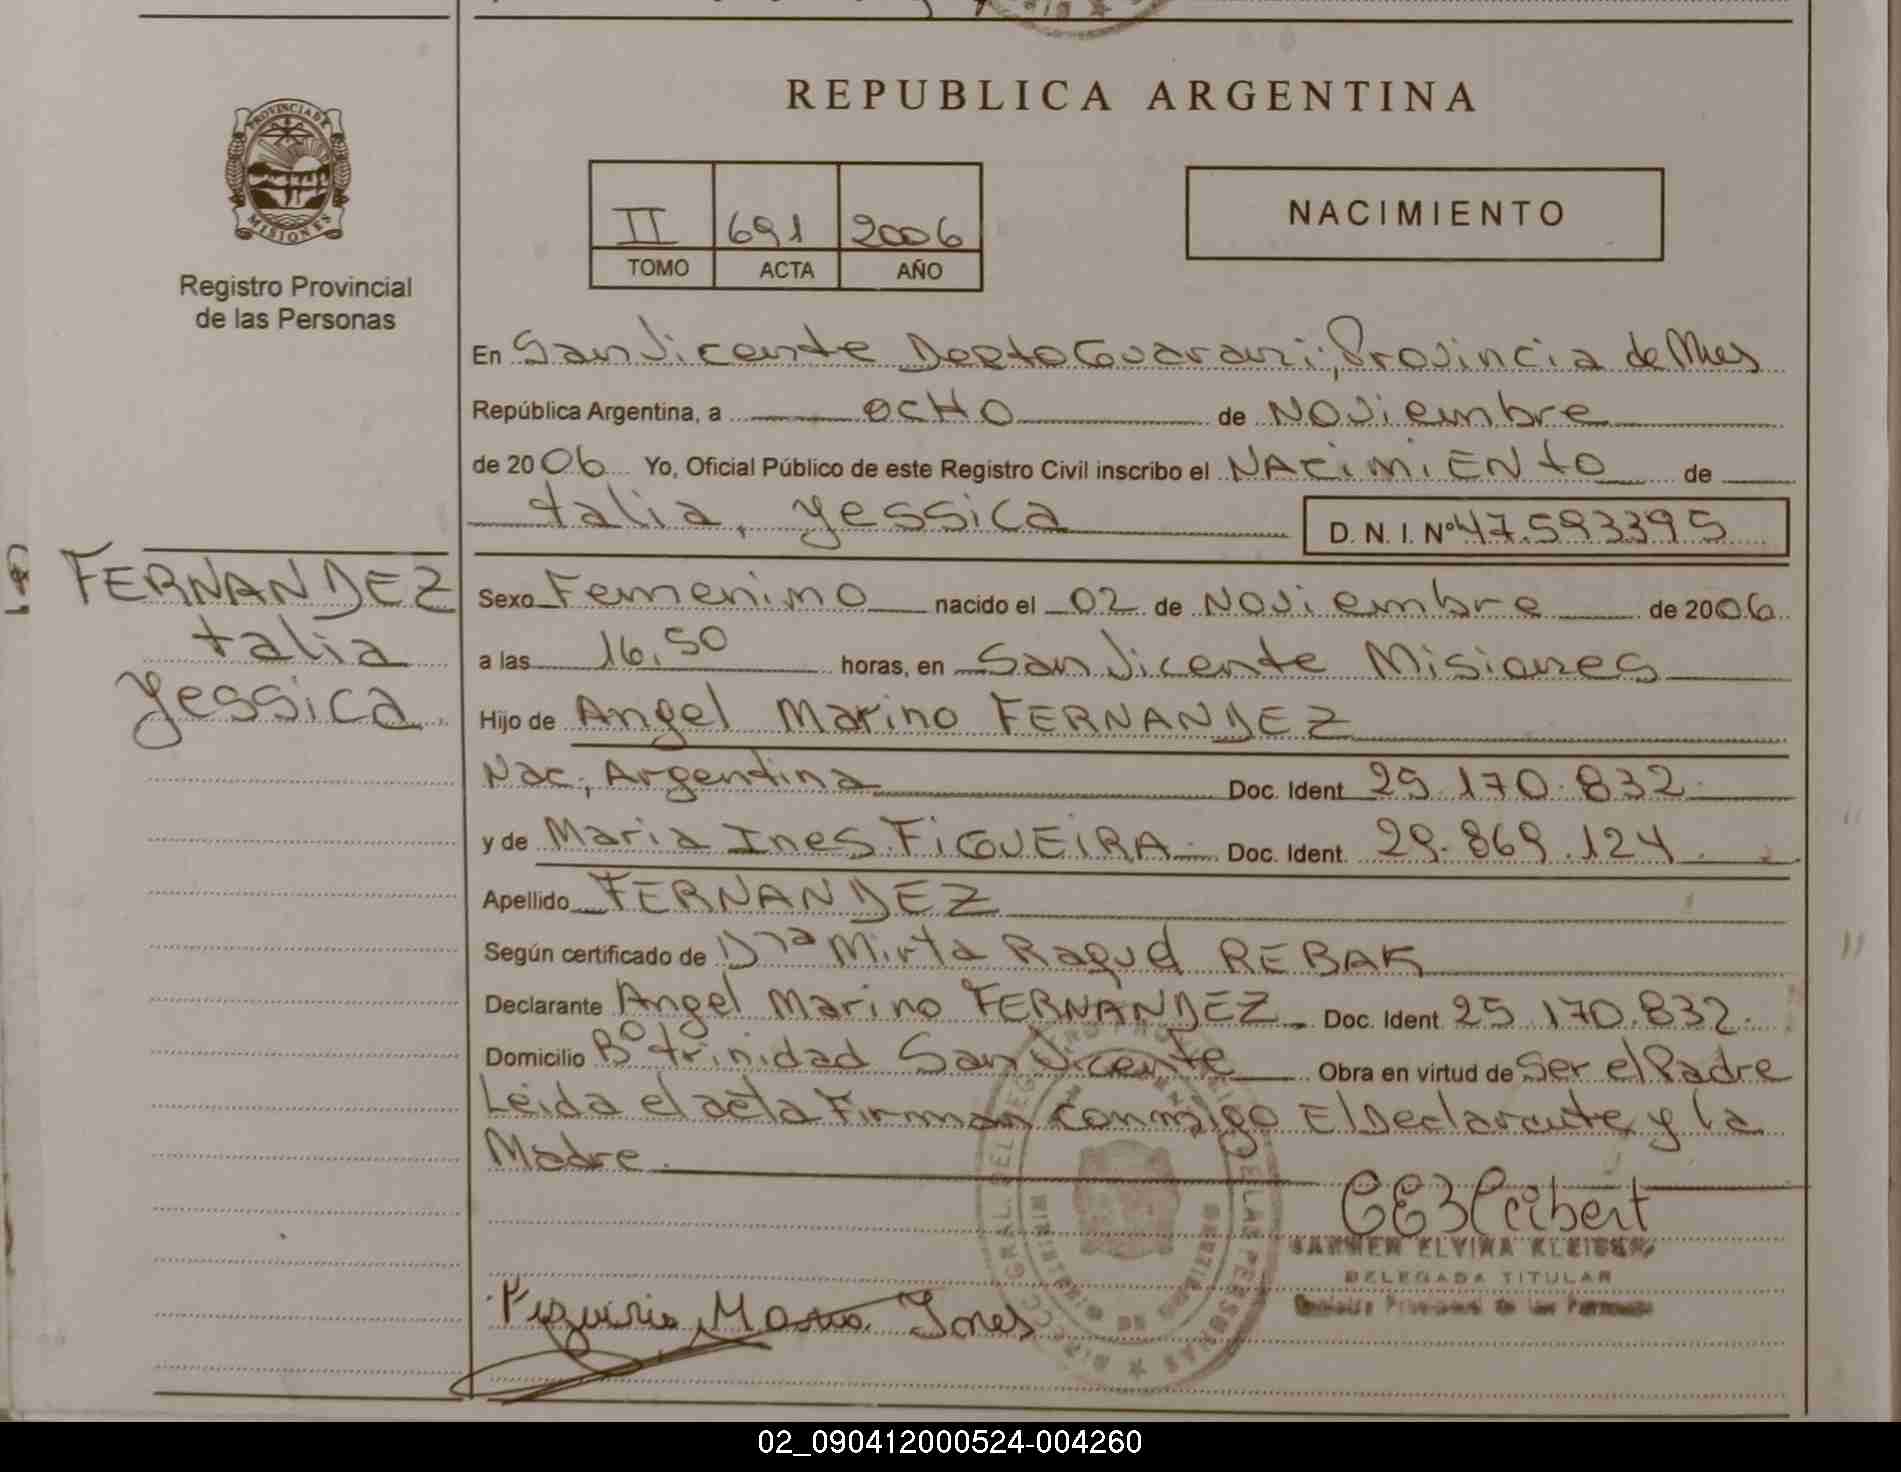 PROVINCIA DE
MISIONES
Registro Provincial
de las Personas
REPUBLICA ARGENTINA
II 691 2006
TOMO ACTA AÑO
NACIMIENTO
En San Vicente Depto Guarani; Provincia de Mnes
República Argentina, a OCHO de Noviembre
de 2006 Yo, Oficial Público de este Registro Civil inscribo el NACIMIENTO de
talia, yessica
D. N. I. Nº 47.593395
FERNANDEZ
talia
yessica
Sexo Femenino nacido el 02 de Noviembre de 2006
a las 16,50 horas, en San Vicente Misiones
Hijo de Angel Marino FERNANDEZ
Nac; Argentina Doc. Ident 25.170.832
y de Maria Ines FiGUEiRA Doc. Ident. 29.869.124
Apellido FERNANDEZ
Según certificado de Drª Mirta Raquel REBAK
Declarante Angel Marino FERNANDEZ Doc. Ident. 25.170.832.
Domicilio Bº trinidad San Vicente Obra en virtud de Ser el Padre
Leida el acta Firman conmigo El Declarante y la
Madre
ELVIRA
DELEGADA TITULAR
Maria Ines
02_090412000524-004260